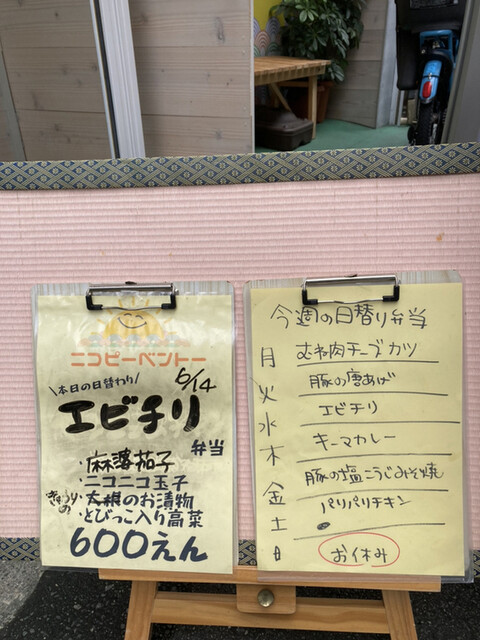 ニコピーベントー
\本日の日替わり/
6/14
エビチリ
弁当
・麻婆茄子
・ニコニコ玉子
・きゅうりのお漬物
・とびっこ入り高菜
600えん
今週の日替り弁当
月 むね肉チーズカツ
火 豚の唐あげ
水 エビチリ
木 キーマカレー
金 豚の塩こうじみそ焼
土 パリパリチキン
日 お休み